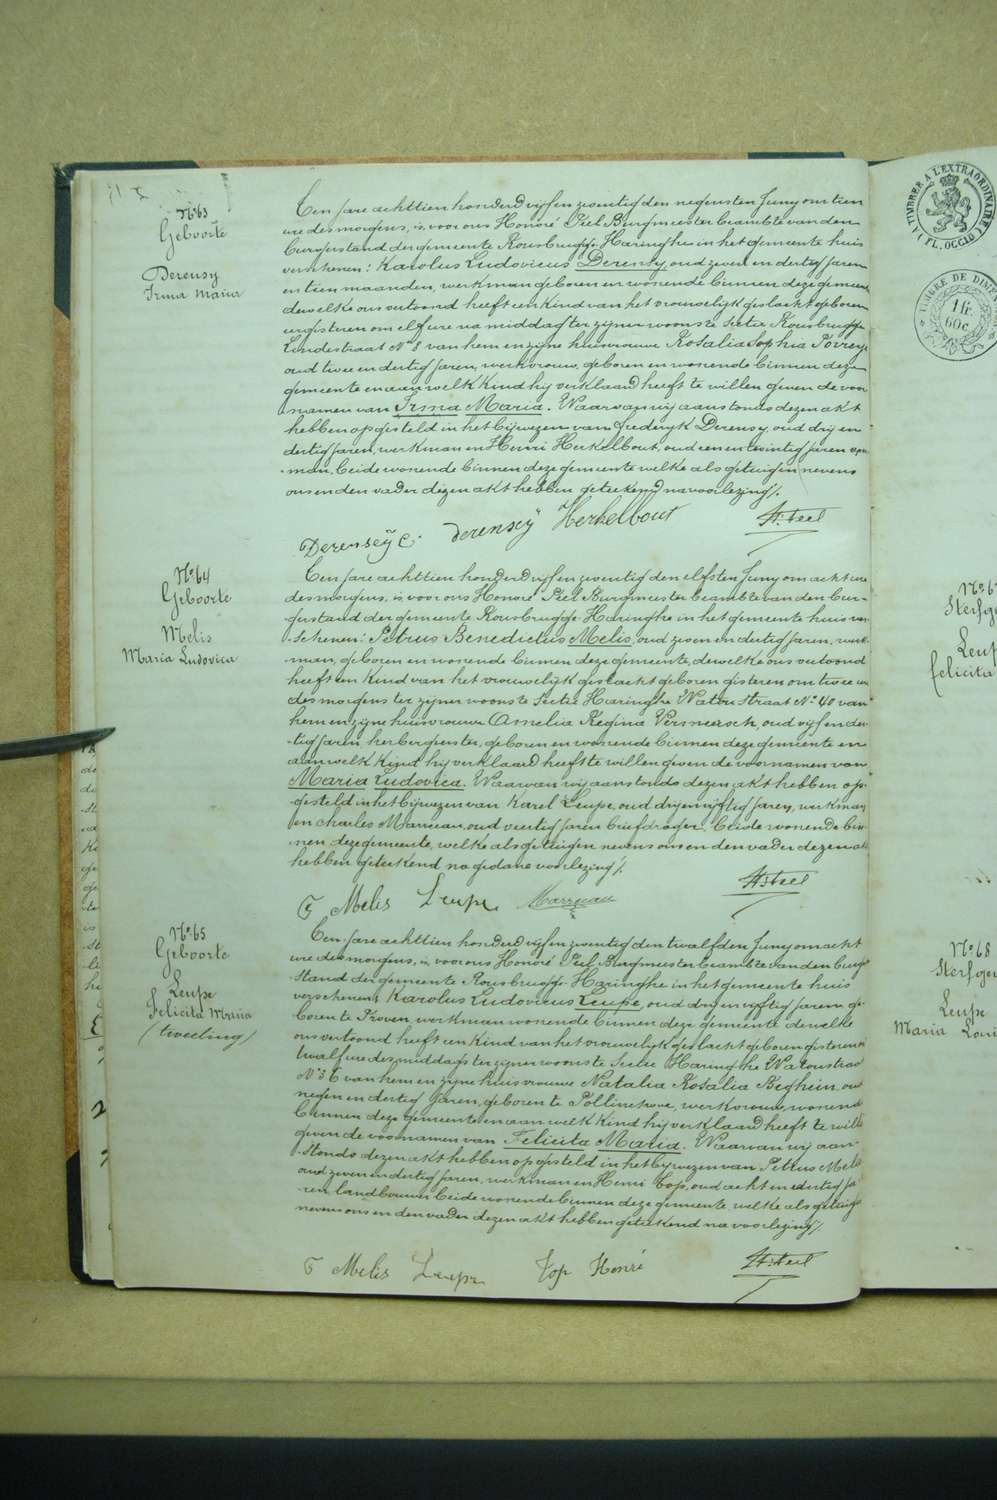 N° 63
Geboorte
Derensy
Irma Maria
Een jare achttien honderd vijf en zwentig den negensten Juny om tien
ure des morgens, is voor ons Honoré Piel Burgmeester beambte van den
burgerstand der gemeente Rousbrugge-Haringhe in het gemeente huis
verschenen: Karolus Ludovicus Derensy, oud zeven en dertig jaren
en tien maanden, werkman geboren en wonende binnen deze gemeente
dewelke ons vertoond heeft een kind van het vrouwelijk geslacht geboren
eergisteren om elf ure na middag ter zijner woonste sectie Rousbrugge
Lindestraat N° 8 van hem en zijne huisvrouwe Rosalia Sophia Povreye
oud twee en dertig jaren, werkvrouw, geboren en wonende binnen deze
gemeente en aan welk kind hij verklaard heeft te willen geven de voor
namen van Irma Maria. Waarvan wij aanstonds dezen akt
hebben opgesteld in het bijwezen van Frederyk Derensy, oud drij en
dertig jaren, werkman en Henri Herkelbout, oud een en twintig jaren
man, beide wonende binnen deze gemeente welke als getuigen nevens
ons en den vader dezen akt hebben geteekend na voorlezing/.
Derensÿ C. Derensÿ Herkelbout H. Peel
N° 64
Geboorte
Melis
Maria Ludovica
Een jare achttien honderd vijf en zwentig den elfsten Juny om acht ure
des morgens, is voor ons Honoré Piel Burgmeester beambte van den bur-
gerstand der gemeente Rousbrugge-Haringhe in het gemeente huis ver-
schenen: Petrus Benedictus Melis, oud zeven en dertig jaren, werk-
man, geboren en wonende binnen deze gemeente, dewelke ons vertoond
heeft een kind van het vrouwelijk geslacht geboren gisteren om twee ure
des morgens ter zijner woonste sectie Haringhe Watou straat N° 40 van
hem en zijne huisvrouwe Amelia Regina Versmersch, oud vijf en der-
tig jaren, herbergierster, geboren en wonende binnen deze gemeente en
aan welk kind hij verklaard heeft te willen geven de voornamen van
Maria Ludovica. Waarvan wij aanstonds dezen akt hebben op-
gesteld in het bijwezen van Karel Leupe, oud drij en vijftig jaren, werkman
en Charles Marreau, oud veertig jaren briefdrager. beide wonende bin-
nen deze gemeente, welke als getuigen nevens ons en den vader dezen akt
hebben geteekend na gedane voorlezing/.
Melis Leupe Marreau H. Peel
N° 65
Geboorte
Leupe
Felicita Maria
(tweeling)
Een jare achttien honderd vijf en zwentig den twalfden Juny om acht
ure des morgens, is voor ons Honoré Piel Burgmeester beambte van den burger-
stand der gemeente Rousbrugge-Haringhe in het gemeente huis
verschenen: Karolus Ludovicus Leupe, oud drij en vijftig jaren, ge-
boren te Proven, werkman wonende binnen deze gemeente dewelke
ons vertoond heeft een kind van het vrouwelijk geslacht geboren gisteren om
twalf ure des middags ter zijner woonste sectie Haringhe Watoustraat
N° 36 van hem en zijne huisvrouwe Natalia Rosalia Beghein, oud
negen en dertig jaren, geboren te Pollinchove, werkvrouw, wonende
binnen deze gemeente en aan welk kind hij verklaard heeft te willen
geven de voornamen van Felicita Maria. Waarvan wij aan-
stonds dezen akt hebben opgesteld in het bijwezen van Petrus Melis
oud zeven en dertig jaren, werkman en Henri Top, oud acht en dertig ja-
ren, landbouwer beide wonende binnen deze gemeente welke als getuigen
nevens ons en den vader dezen akt hebben geteekend na voorlezing/.
Melis Leupe Top Honré H. Peel
TIMBRER A L'EXTRAORDINAIRE
(FL. OCCID.)
TIMBRE DE DIM
1 fr.
60 c.
N° 6
Sterfge
Leup
Felicita
N° 68
Sterfge
Leupe
Maria Loui